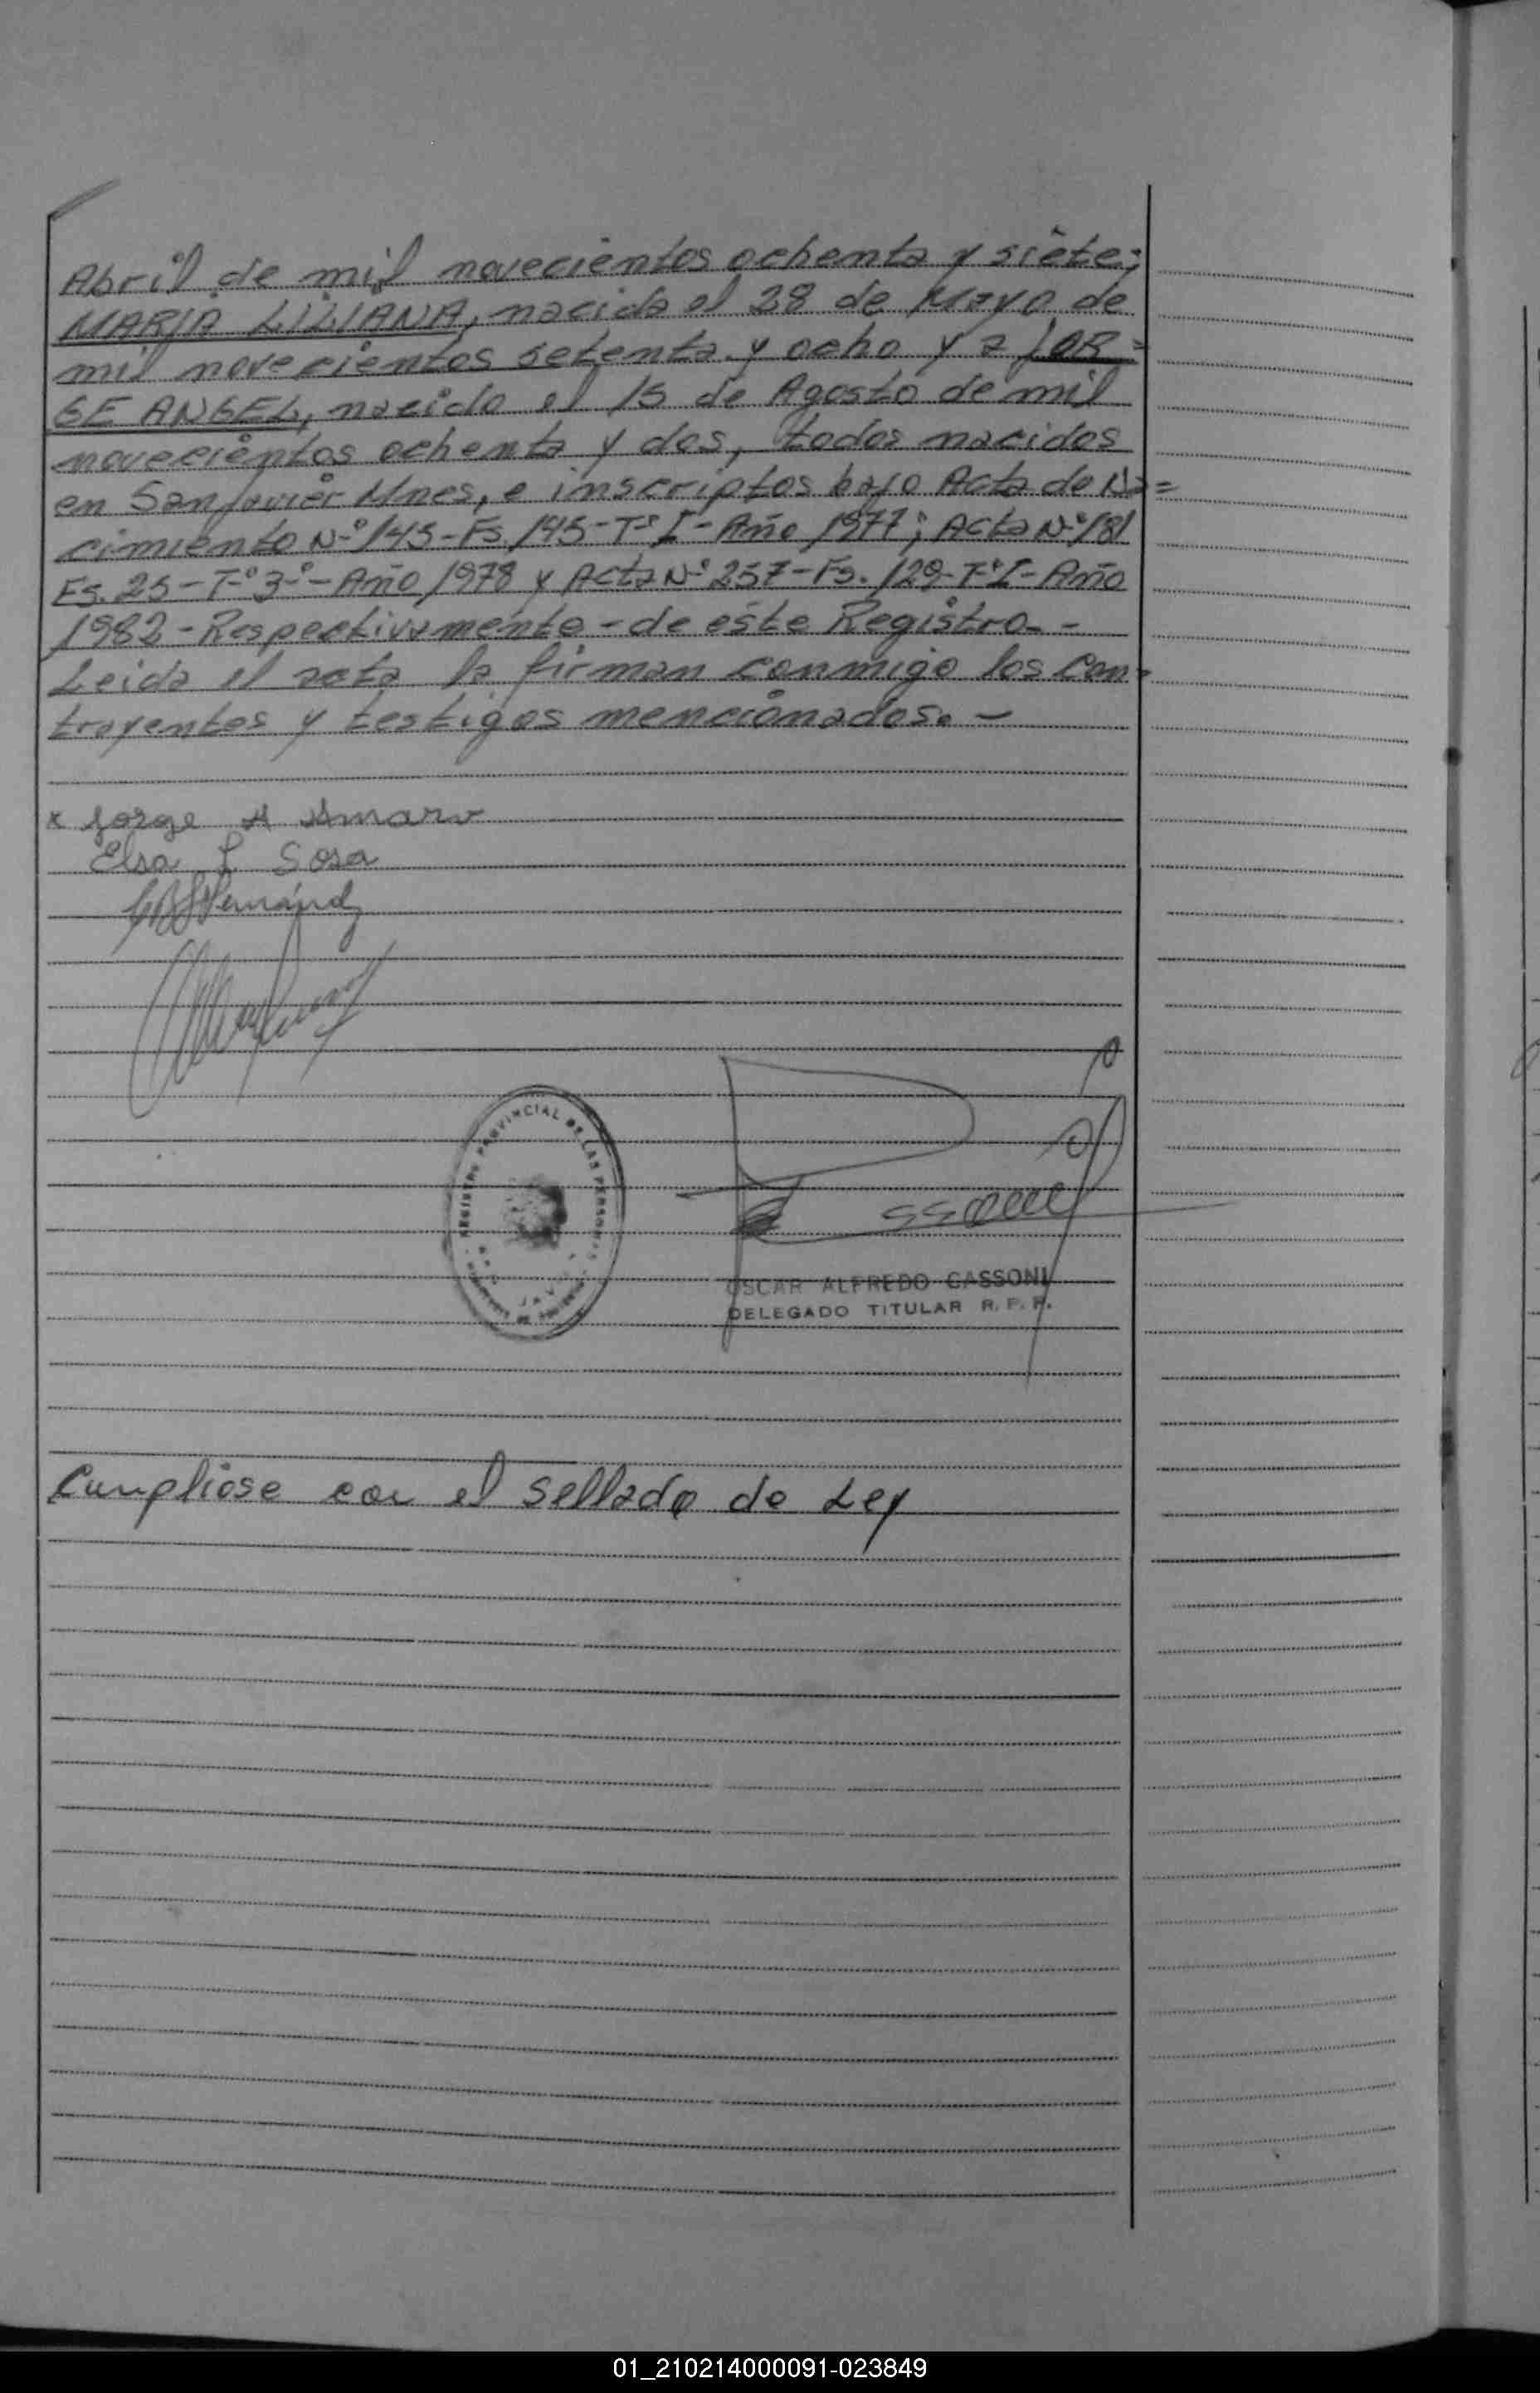 Abril de mil novecientos ochenta y siete;
MARIA LILIANA, nacida el 28 de Mayo de
mil novecientos setenta y ocho y a JOR=
GE ANGEL, nacido el 15 de Agosto de mil
novecientos ochenta y dos, todos nacidos
en San Javier Mnes, e inscriptos bajo Acta de Na=
cimiento Nº 145-Fs. 145-Tº I-Año 1977; Acta Nº 181
Fs. 25-Tº 3º-Año 1978 y Acta Nº 257-Fs. 129-Tº I-Año
1982-Respectivamente-de este Registro.-
Leida el acta la firman conmigo los Con-
trayentes y testigos mencionados.-
x Jorge A Amaro
Elsa L Sosa
REGISTRO PROVINCIAL DE LAS PERSONAS
OSCAR ALFREDO CASSONI
DELEGADO TITULAR R.P.P.
Cumpliose con el sellado de Ley
01_210214000091-023849